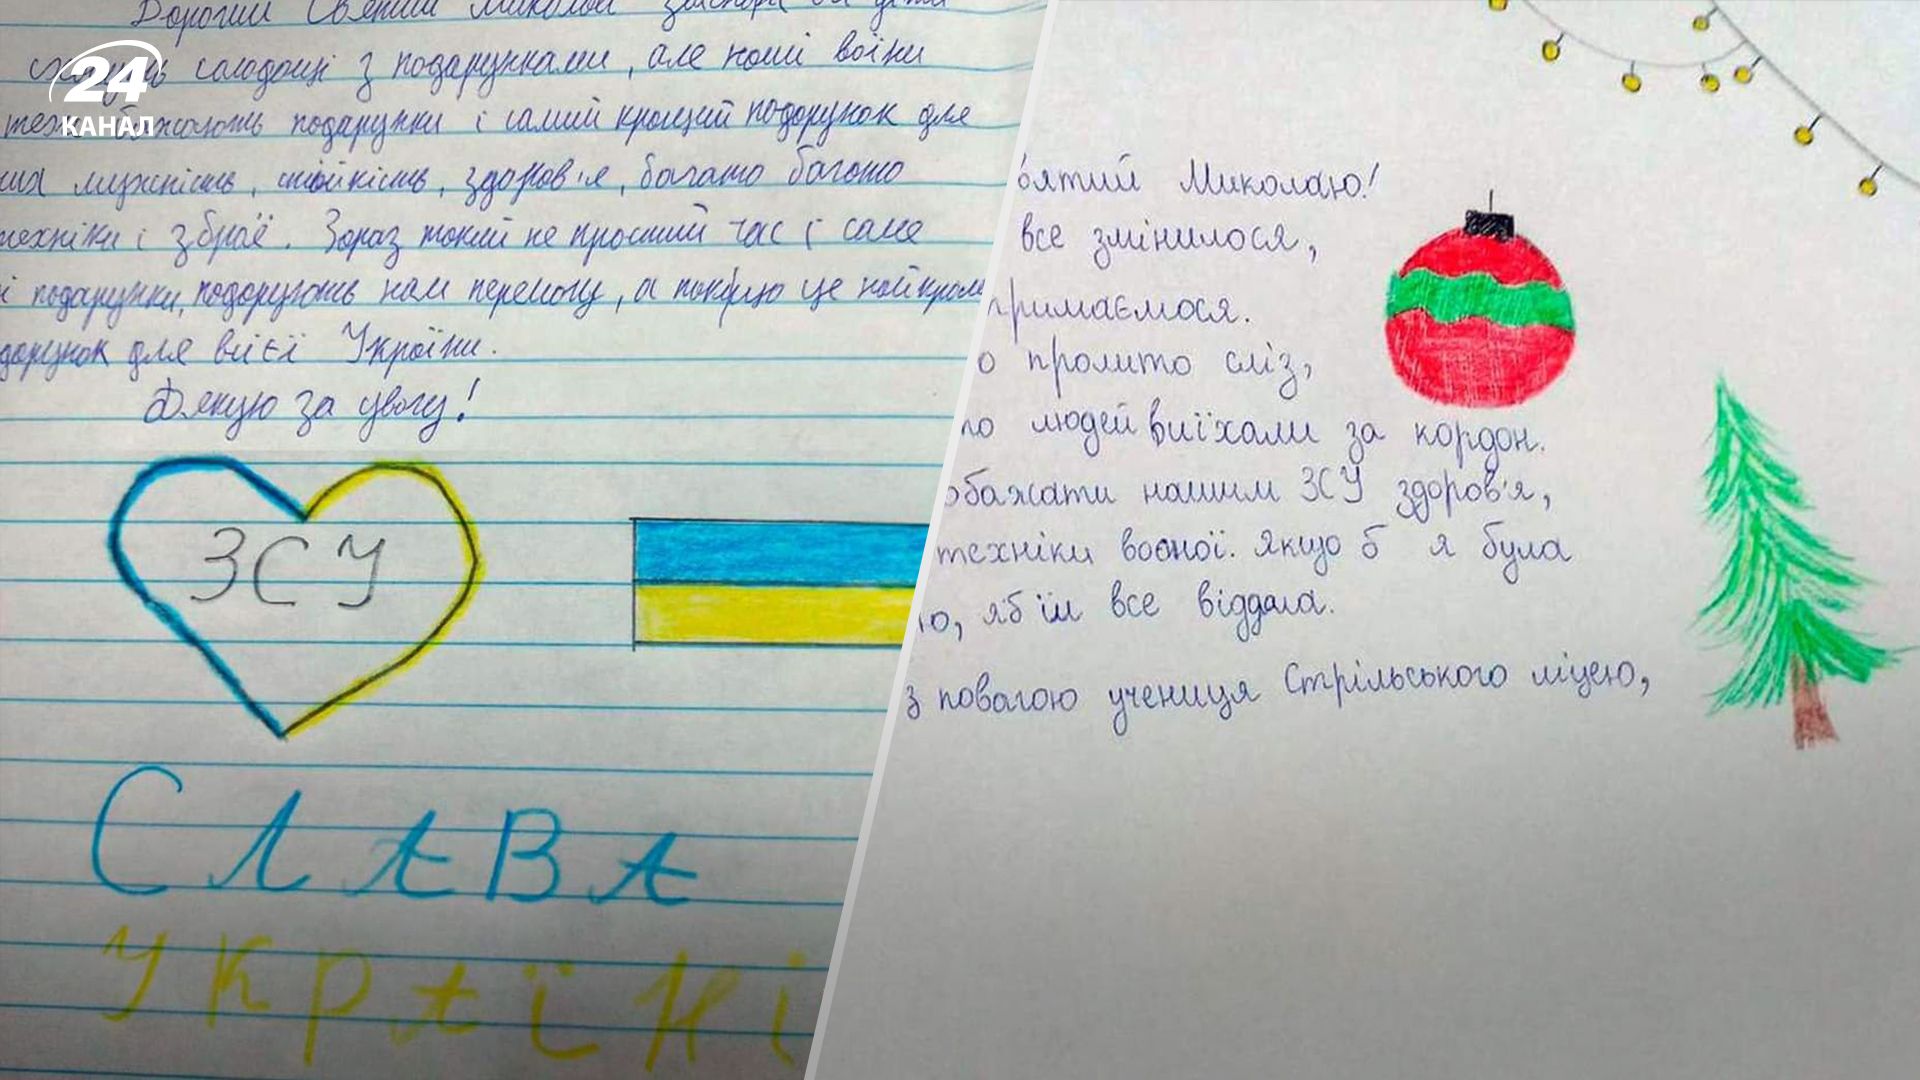 Дорогий Святий Миколай
солодощі з подарунками, але наші воїни
24
КАНАЛ
подарунки і самий кращий подарунок для
них мужність, стійкість, здоров'я, багато багато
техніки і зброї. Зараз такий не простий час і саме
і подарунки, подарують нам перемогу, а
дарунок для всієї України.
Дякую за увагу!
ЗСУ
СЛАВА
УКРАЇНІ
вятий Миколаю!
все змінилося,
тримаємося.
о пролито сліз,
то людей виїхали за кордон.
обажати нашим ЗСУ здоров'я,
техніки воєної. Якщо б я була
ю, я б їм все віддала.
з повагою учениця Стрільського ліцею,